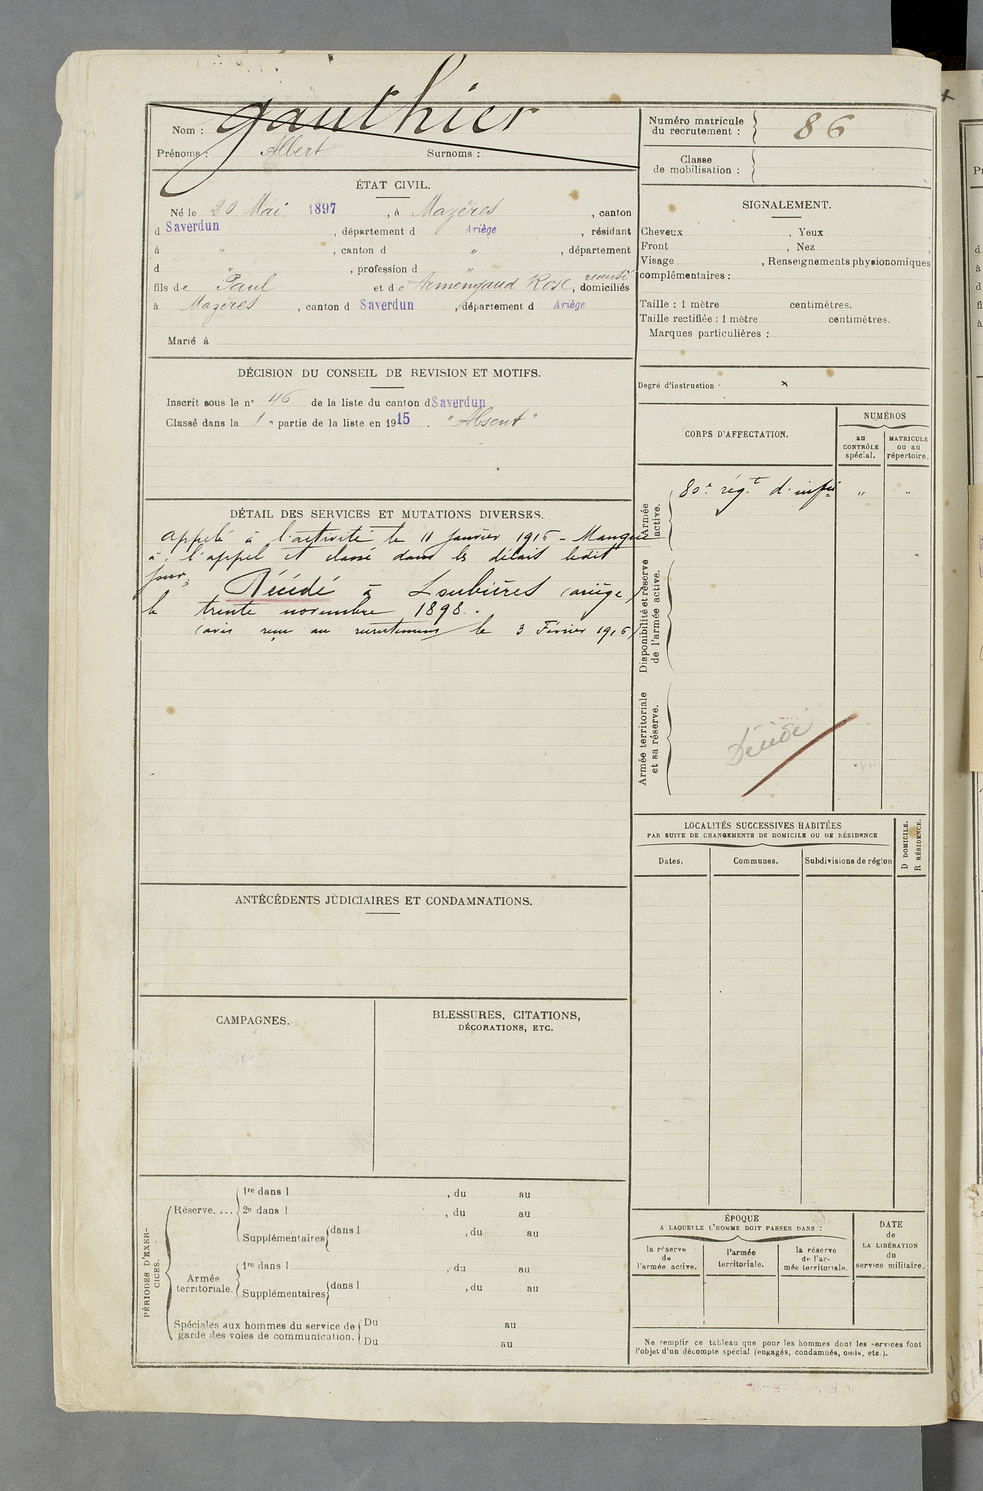 Nom : Gauthier
Prénoms : Albert Surnoms :
ÉTAT CIVIL.
Né le 20 Mai 1897, à Mazères, canton
d Saverdun, département d Ariège, résidant
à ", canton d ", département
d ", profession d "
fils de Paul et de Armengaud Rose, domiciliés
à Mazères, canton d Saverdun, département d Ariège
Marié à
DÉCISION DU CONSEIL DE REVISION ET MOTIFS.
Inscrit sous le n° 46 de la liste du canton d Saverdun
Classé dans la 1e partie de la liste en 1915. "Absent"
DÉTAIL DES SERVICES ET MUTATIONS DIVERSES.
Appelé à l'activité le 11 janvier 1916 - Manquant
à l'appel et classé dans les délais ledit
jour.
Décédé à Loubières (Ariège)
le trente novembre 1898.
(avis reçu au recrutement le 3 Février 1916)
ANTÉCÉDENTS JUDICIAIRES ET CONDAMNATIONS.
CAMPAGNES.
BLESSURES, CITATIONS,
DÉCORATIONS, ETC.
PÉRIODES D'EXER-
CICES.
Réserve....
1re dans l , du au
2e dans l , du au
Supplémentaires dans l , du au
Armée
territoriale.
1re dans l , du au
Supplémentaires dans l , du au
Spéciales aux hommes du service de
garde des voies de communication.
Du au
Du au
Numéro matricule
du recrutement : 86
Classe
de mobilisation :
SIGNALEMENT.
Cheveux , Yeux
Front , Nez
Visage , Renseignements physionomiques
complémentaires :
Taille : 1 mètre centimètres.
Taille rectifiée : 1 mètre centimètres.
Marques particulières :
Degré d'instruction : x
CORPS D'AFFECTATION.
NUMÉROS
au
CONTRÔLE
spécial.
MATRICULE
ou au
répertoire.
Armée
active.
80e régt d'infie " "
Disponibilité et réserve
de l'armée active.
Armée territoriale
et sa réserve.
Décédé
LOCALITÉS SUCCESSIVES HABITÉES
PAR SUITE DE CHANGEMENTS DE DOMICILE OU DE RÉSIDENCE
Dates.
Communes.
Subdivisions de région
D DOMICILE.
R RÉSIDENCE.
ÉPOQUE
A LAQUELLE L'HOMME DOIT PASSER DANS :
la réserve
de
l'armée active.
l'armée
territoriale.
la réserve
de l'ar-
mée territoriale.
DATE
de
LA LIBÉRATION
du
service militaire.
Ne remplir ce tableau que pour les hommes dont les services font
l'objet d'un décompte spécial (engagés, condamnés, omis, etc.).